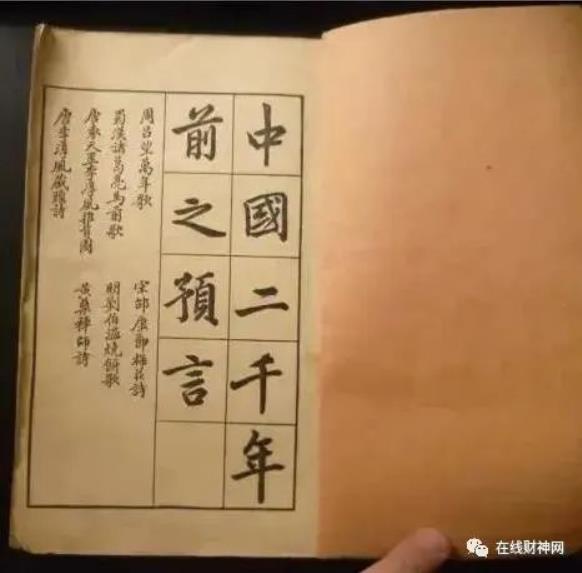 中國二千年
前之預言
周呂望萬年歌 宋邵康節梅花詩
蜀漢諸葛亮馬前歌 明劉伯溫燒餅歌
唐袁天罡李淳風推背圖 黃蘗禪師詩
唐李淳風藏頭詩
在线财神网